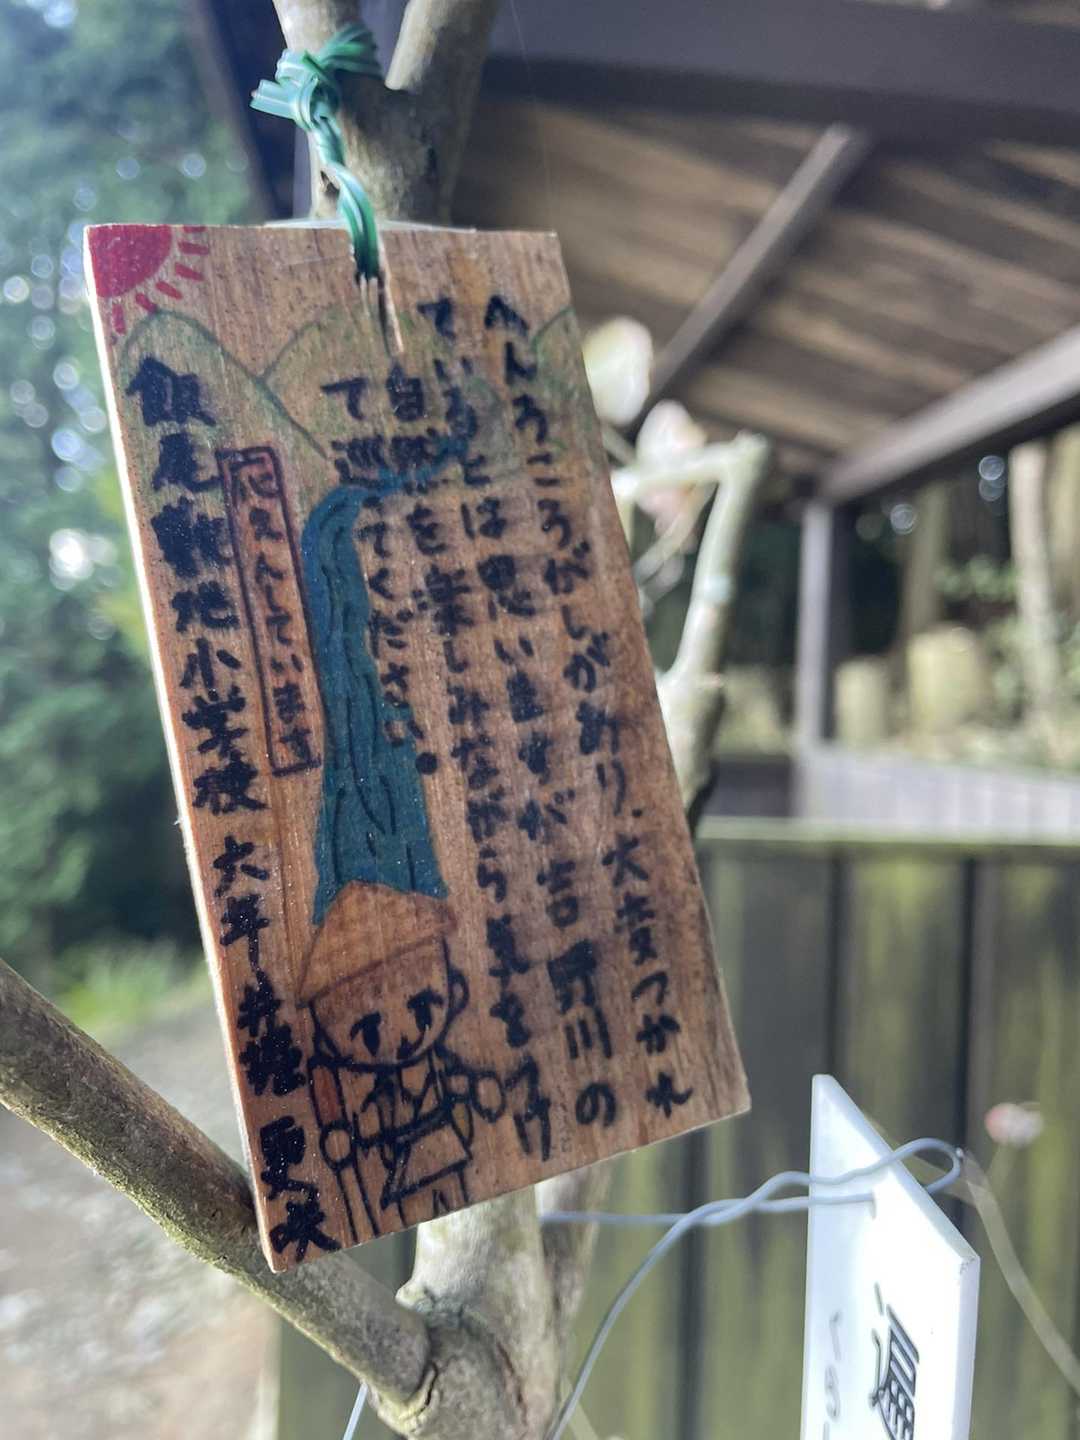 へんろころがしがあり、大変つかれ
ているとは思いますが吉野川の
自然を楽しみながら気をつけ
て巡ってください。
応えんしています
飯尾敷地小学校 六年 井堀 夏咲